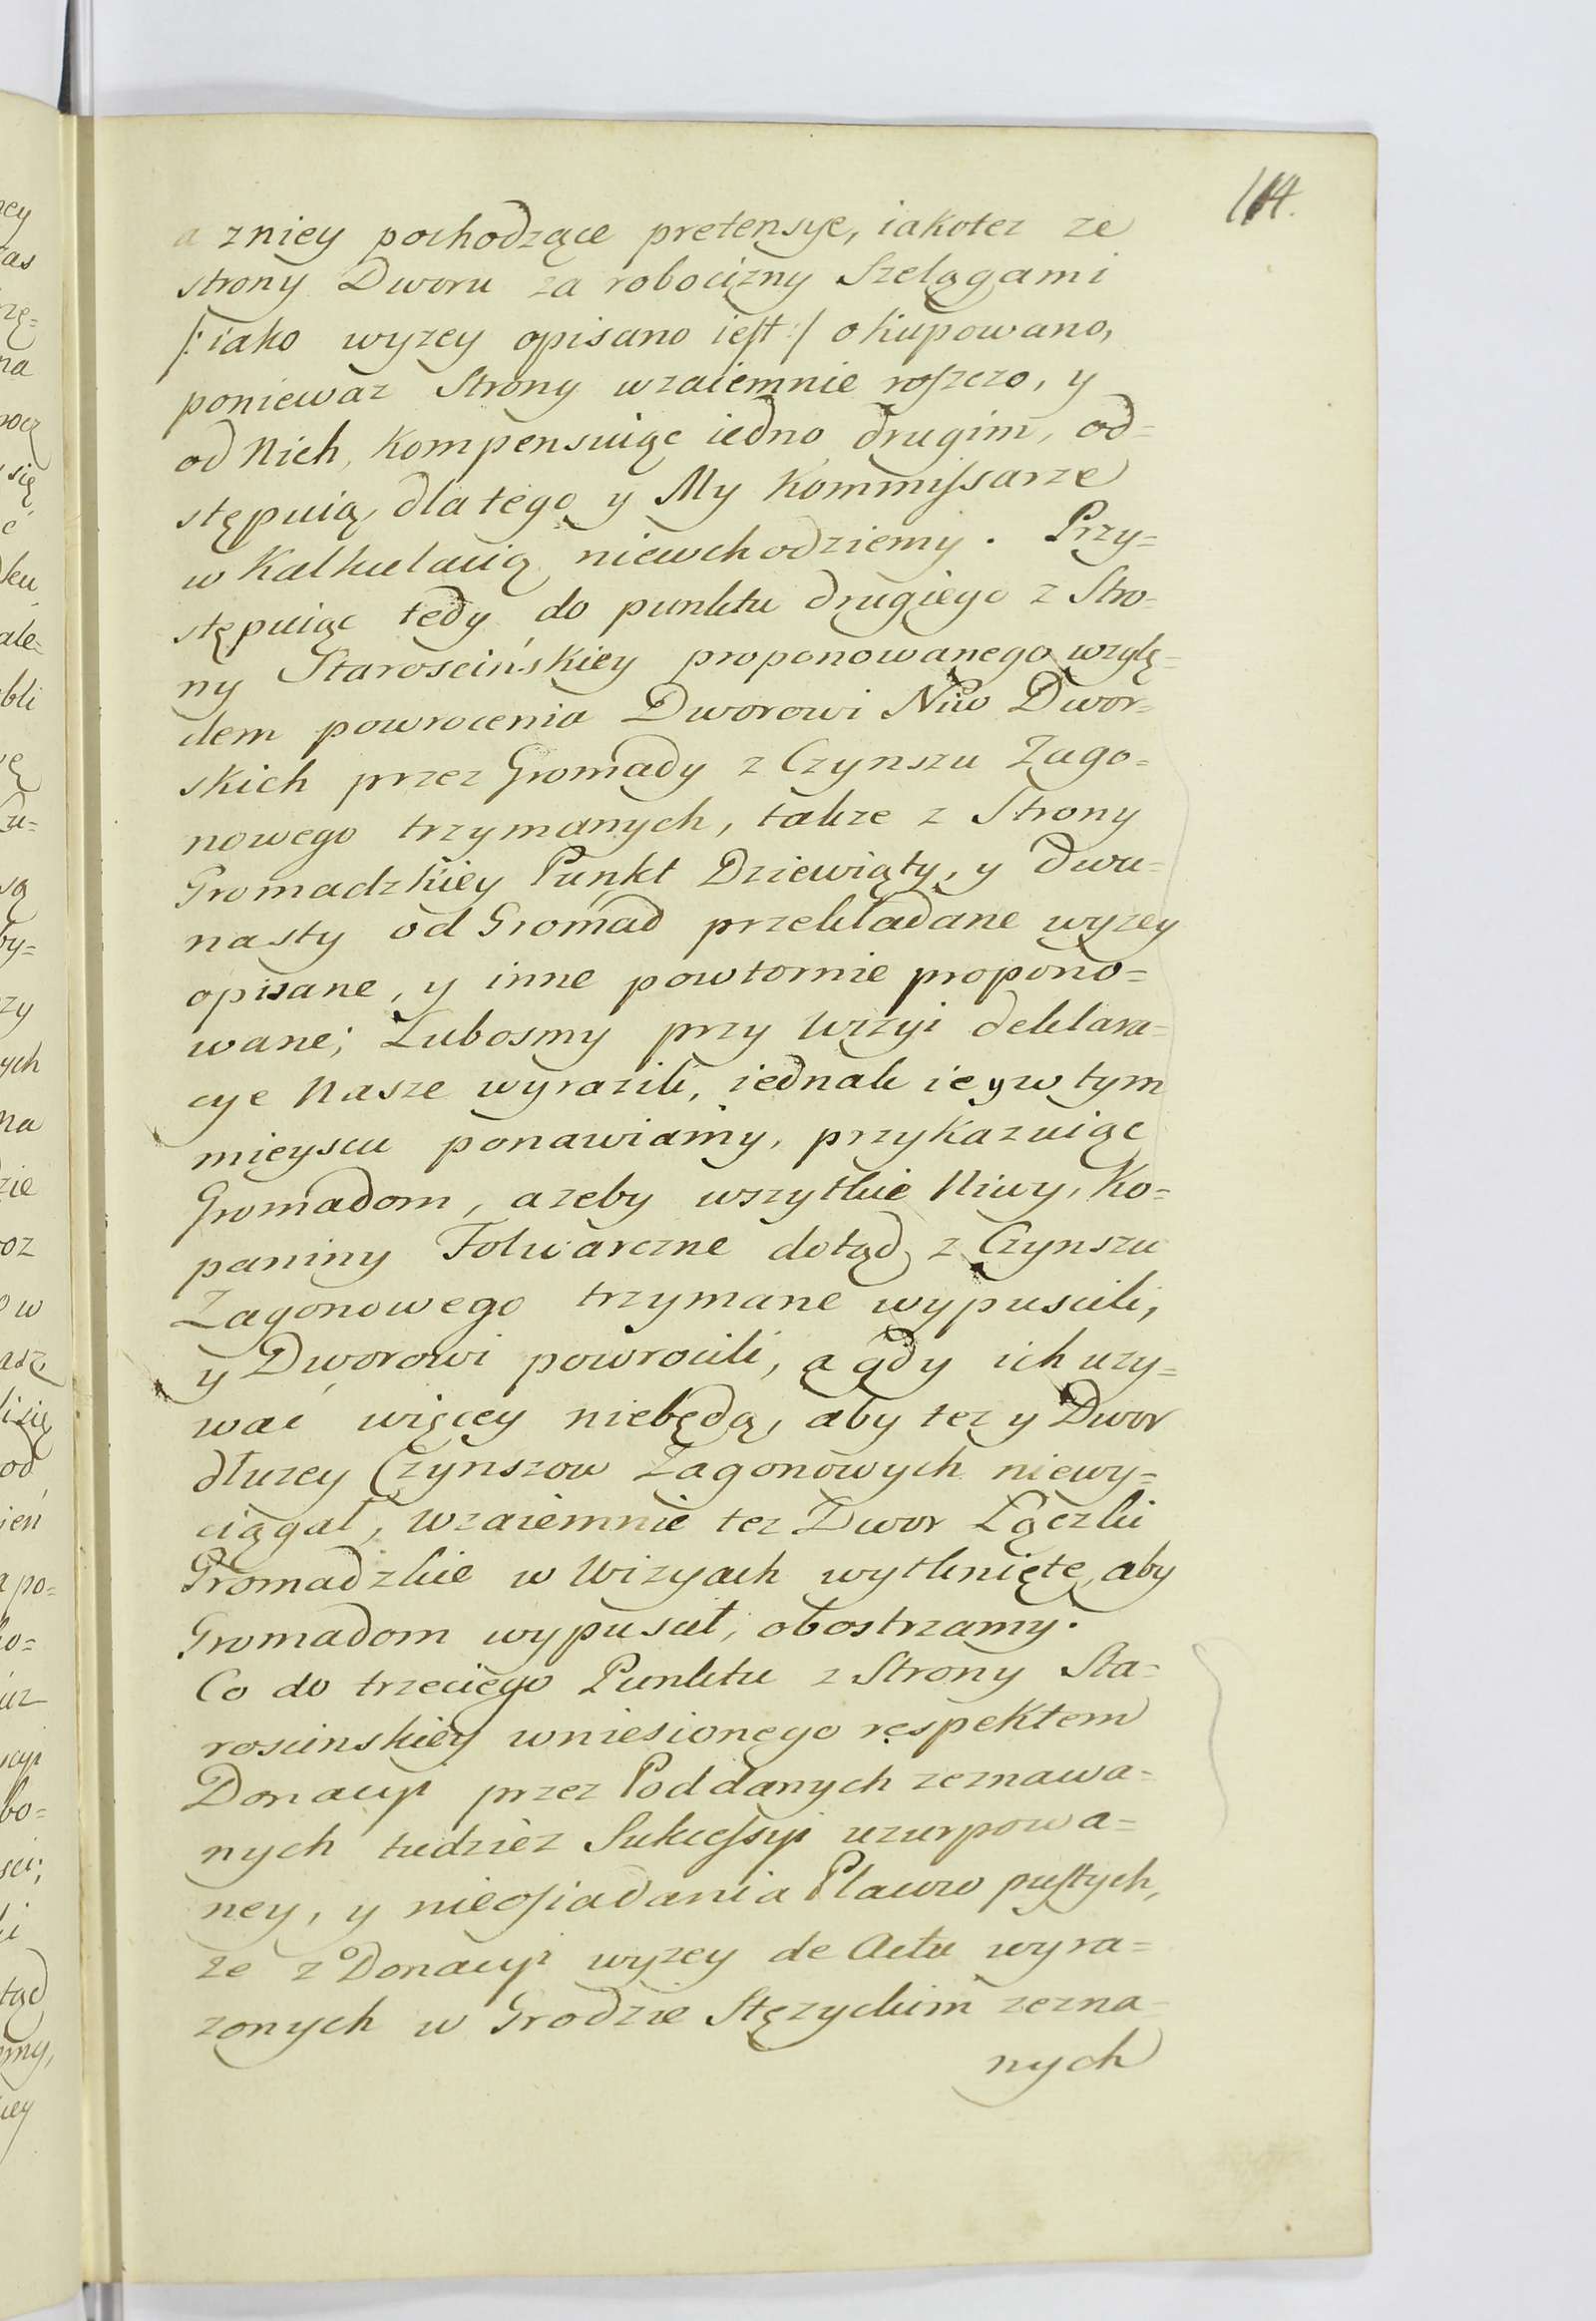 114.
a zniey pochodzące pretensye, iakotez ze
strony Dworu za robocizny Szelągami
/: iako wyzey opisano iest :/ okupowano,
poniewaz Strony wzaiemnie roszczo, y
od Nich, kompensuiąc iedno drugim, od=
stępuią, dla tego y My Kommissarze
w Kalkulacią niewchodziemy. Przy=
stępuiąc tedy do punktu drugiego z Stro=
ny Starościńskiey proponowanego wzglę=
dem powrocenia Dworowi Niw Dwor=
skich przez Gromady z Czynszu Zago=
nowego trzymanych, takze z Strony
Gromadzkiey Punkt Dziewiąty, y dwu=
nasty od Gromad przekładane wyzey
opisane, y inne powtornie propono=
wane; Lubosmy przy Wizyi deklara=
cye Nasze wyrazili, iednak ie y w tym
mieyscu ponawiamy, przykazuiąc
Gromadom, azeby wszytkie Niwy, Ko=
paniny Folwarczne dotąd z Czynszu
Zagonowego trzymane wypuscili,
y Dworowi powrocili, a gdy ich uzy=
wać więcey niebędą, aby tez y Dwor
dłuzey Czynszow Zagonowych niewy=
ciągał, wzaiemnie tez Dwor Łączki
Gromadzkie w Wizyach wytknięte, aby
Gromadom wypuscił, obostrzamy.
Co do trzeciego Punktu z Strony Sta=
roscinskiey wniesionego respektem
Donacyi przez Poddanych zeznawa=
nych tudziez Sukcessyi uzurpowa=
ney, y nieosiadania Placow pustych,
ze z Donacyi wyzey de Actu wyra=
zonych w Grodzie Stęzyckim zezna=
nych